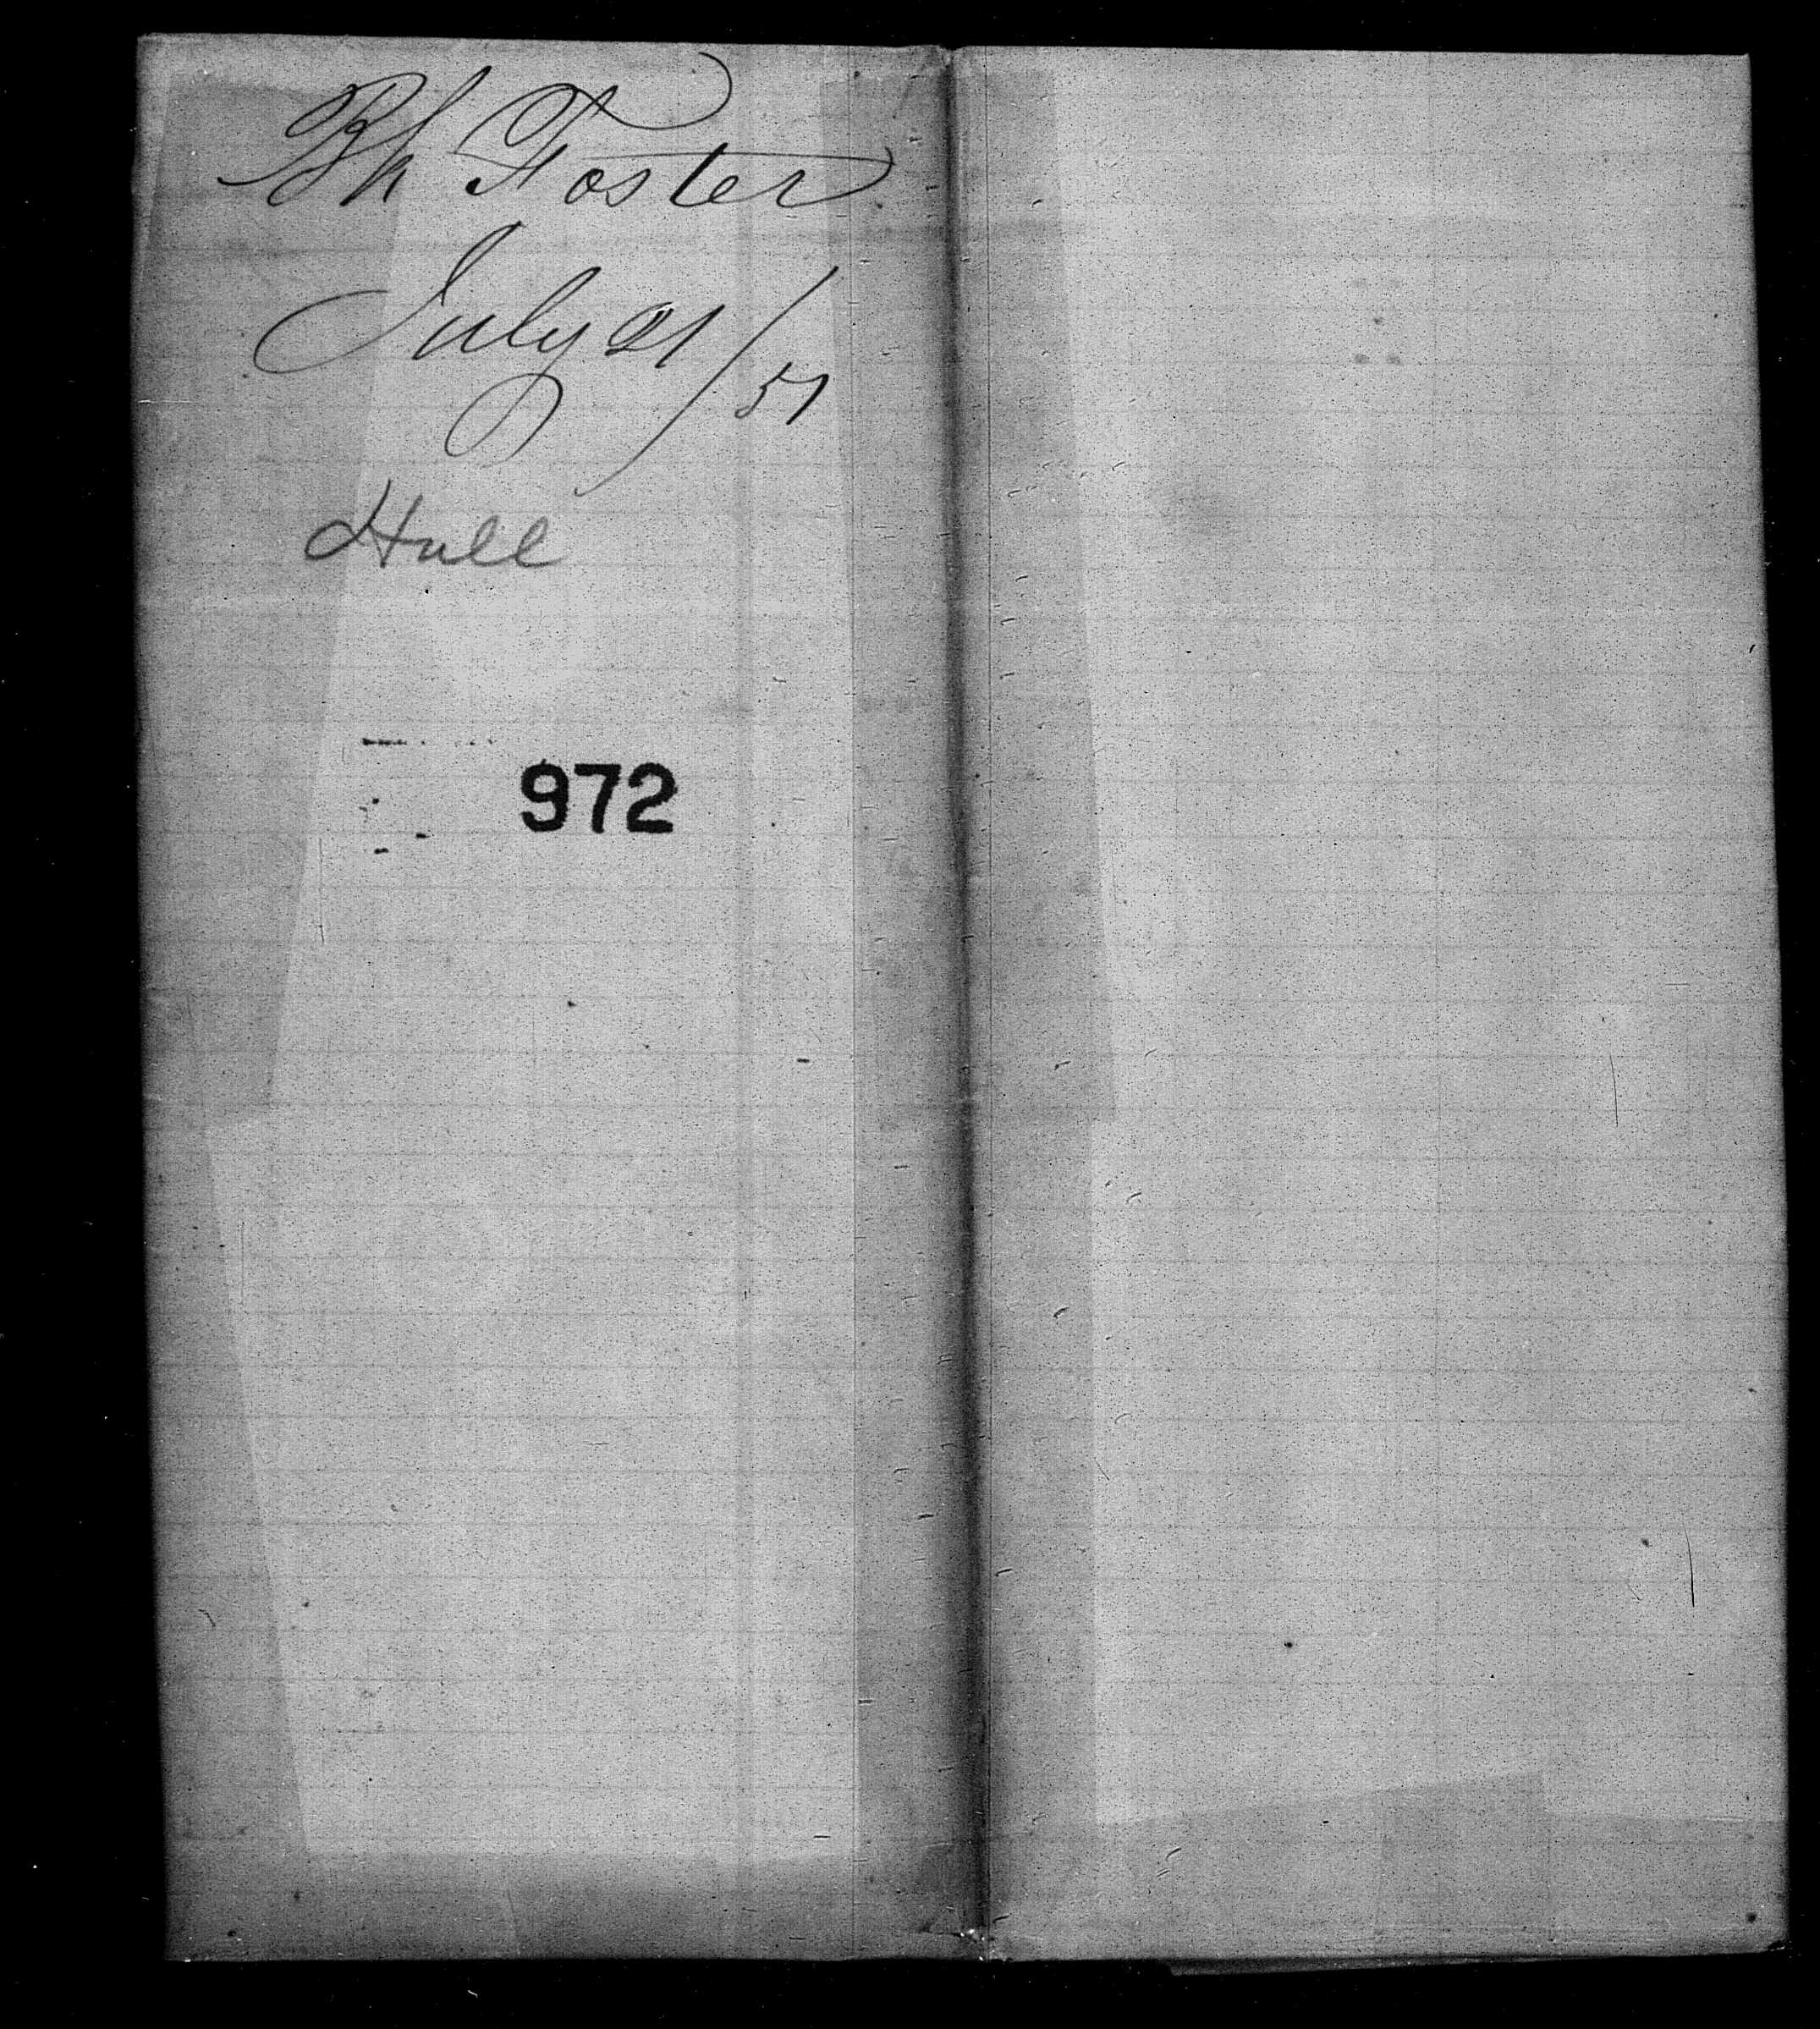 Bk Foster
July 21/51
Hull
972